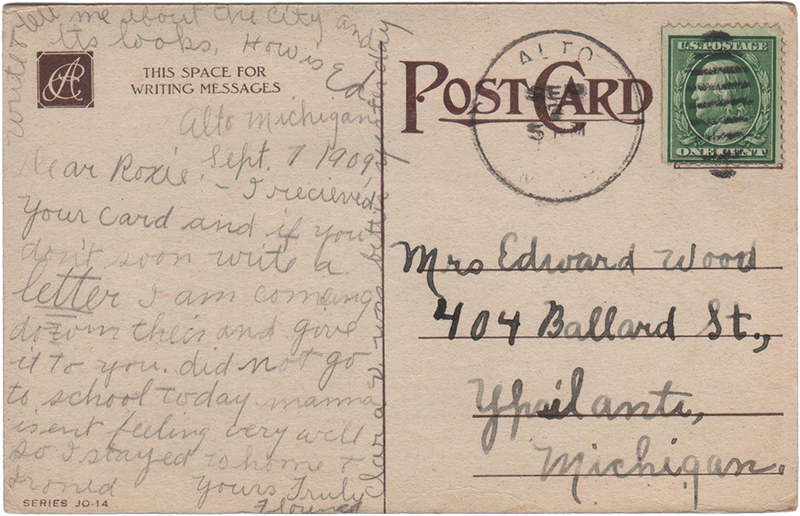 Write
tell me about the city and
its looks. How is Ed
THIS SPACE FOR
WRITING MESSAGES
Alto Michigan
Sept. 7 1909
Dear Roxie: - I recieved
your card and if you
don't soon write a
letter I am comeing
down their and give
it to you. did not go
to school today. mama
is ent feeling very well
so I stayed to home &
ironed
Yours Truly
SERIES JO-14
Clara V. was better yesterday
POST CARD
ALTO
SEP
5 PM
U.S. POSTAGE
ONE CENT
Mrs Edward Wood
404 Ballard St.,
Ypsilanti,
Michigan.